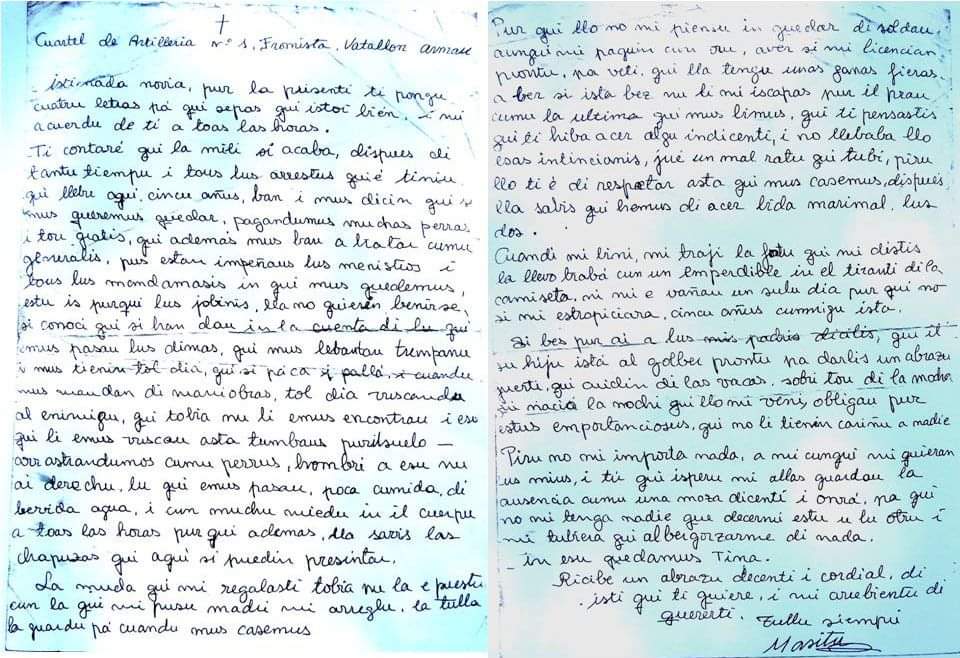 Cuartel de Artilleria nº 1, Fromista, Vatallon armau
istimada novia, pur la prisenti ti pongu
cuatru letras pá qui sepas qui istoi bien, i mi
acuerdu de ti a toas las horas.
Ti contaré qui la mili si acaba, dispues di
tantu tiempu i tous lus arrestus qui é tiniu
qui llebu aqui, cincu añus, ban i mus dicin qui si
mus queremus quedar, pagandumus muchas perras
i tou gratis, qui ademas mus ban a tratar cumu
generalis, pus estan impeñaus lus menistros i
tous lus mandamasis in qui mus quedemus,
estu is purqui lus jobinis, lla no quierin benirse,
si conoci qui si han dau in la cuenta di lu qui
emus pasau lus dimas, qui mus lebantan trumpanu
i mus tienin tol dia, qui si pá ca si pallá, si cuandu
mus mandan di maniobras, tol dia vuscandu
al enimigu, qui tobia nu li emus encontrau i eso
qui li emus vuscau asta tumbaus puril suelo —
arrastrandumos cumu perrus, hombri a esu nu
ai derechu, lu qui emus pasau, poca cumida, di
bevida agua, i cun muchu miedu in il cuerpu
a toas las horas pur qui ademas, lla savis las
chapuzas qui aqui si puedin presintau.
La muda qui mi regalasti tobia nu la e puestu
cun la qui mi pusu madri mi arreglu, la tulla
la guardu pá cuandu mus casemus
Pur qui llo no mi piensu in quedar di soldau,
aunqui mi paguin cun oru, aver si mi licencian
prontu, pa veti, qui lla tengu unas ganas fieras
a ber si ista bez nu li mi iscapas pur il prau
cumu la ultima qui mus bimus, qui ti pensastis
qui ti hiba acer algu indicenti, i no llebaba llo
esas intincianis, jué un mal ratu qui tubi, piru
llo ti é di respetar asta qui mus casemus, dispués
lla sabis qui hemus di acer bida marimal, lus
dos.
Cuandi mi bini, mi traji la fotu qui mi distis
la llevo trabá cun un emperdible in el tiranti di la
camiseta, ni mi e vañau un sulu dia pur qui no
si mi estropiciara, cincu añus cunmigu ista.
Si bes pur ai a lus mis padris dicilis, qui il
su hiju istá al golber prontu pa darlis un abrazu
juerti, qui cuidin di las vacas, sobri tou di la mocha
qui naciá la nochi qui llo mi vini, obligau pur
estus emportanciosus, qui no li tienin cariñu a nadie
Piru no mi importa nada, a mi cunqui mi quieran
lus mius, i tú qui isperu mi allas guardau la
ausencia cumu una moza dicenti i onrá, pa qui
no mi tenga nadie que decermi estu u lu otru i
mi tubiera qui albergorzarme di nada.
in esu quedamus Tina.
Ricibe un abrazu decenti i cordial, di
isti qui ti quiere, i mi arrebientu di
quererti. Tullu siempri
Masitu